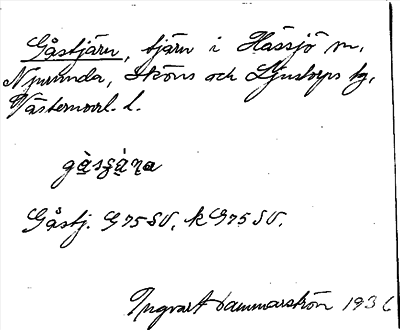 Gåstjärn, tjärn i Hässjö sn,
Njurunda, Sköns och Ljustorps tg,
Västernorrl. l.
gàsɟạ́ṇa
Gåstj. G 75 SV, k G 75 SV.
Ingvart Hammarström 1936